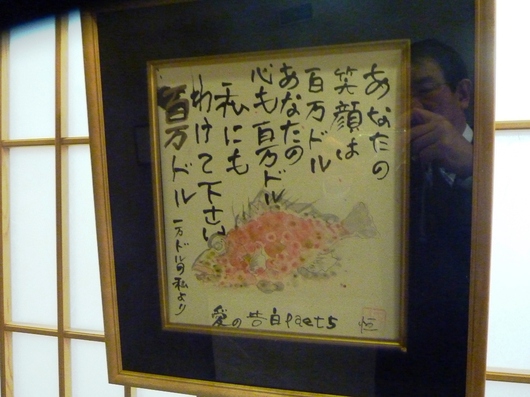 あなたの
笑顔は
百万ドル
あなたの
心も百万ドル
私にも
わけて下さい
百万ドル
一万ドルの私より
愛の告白Part5
恒